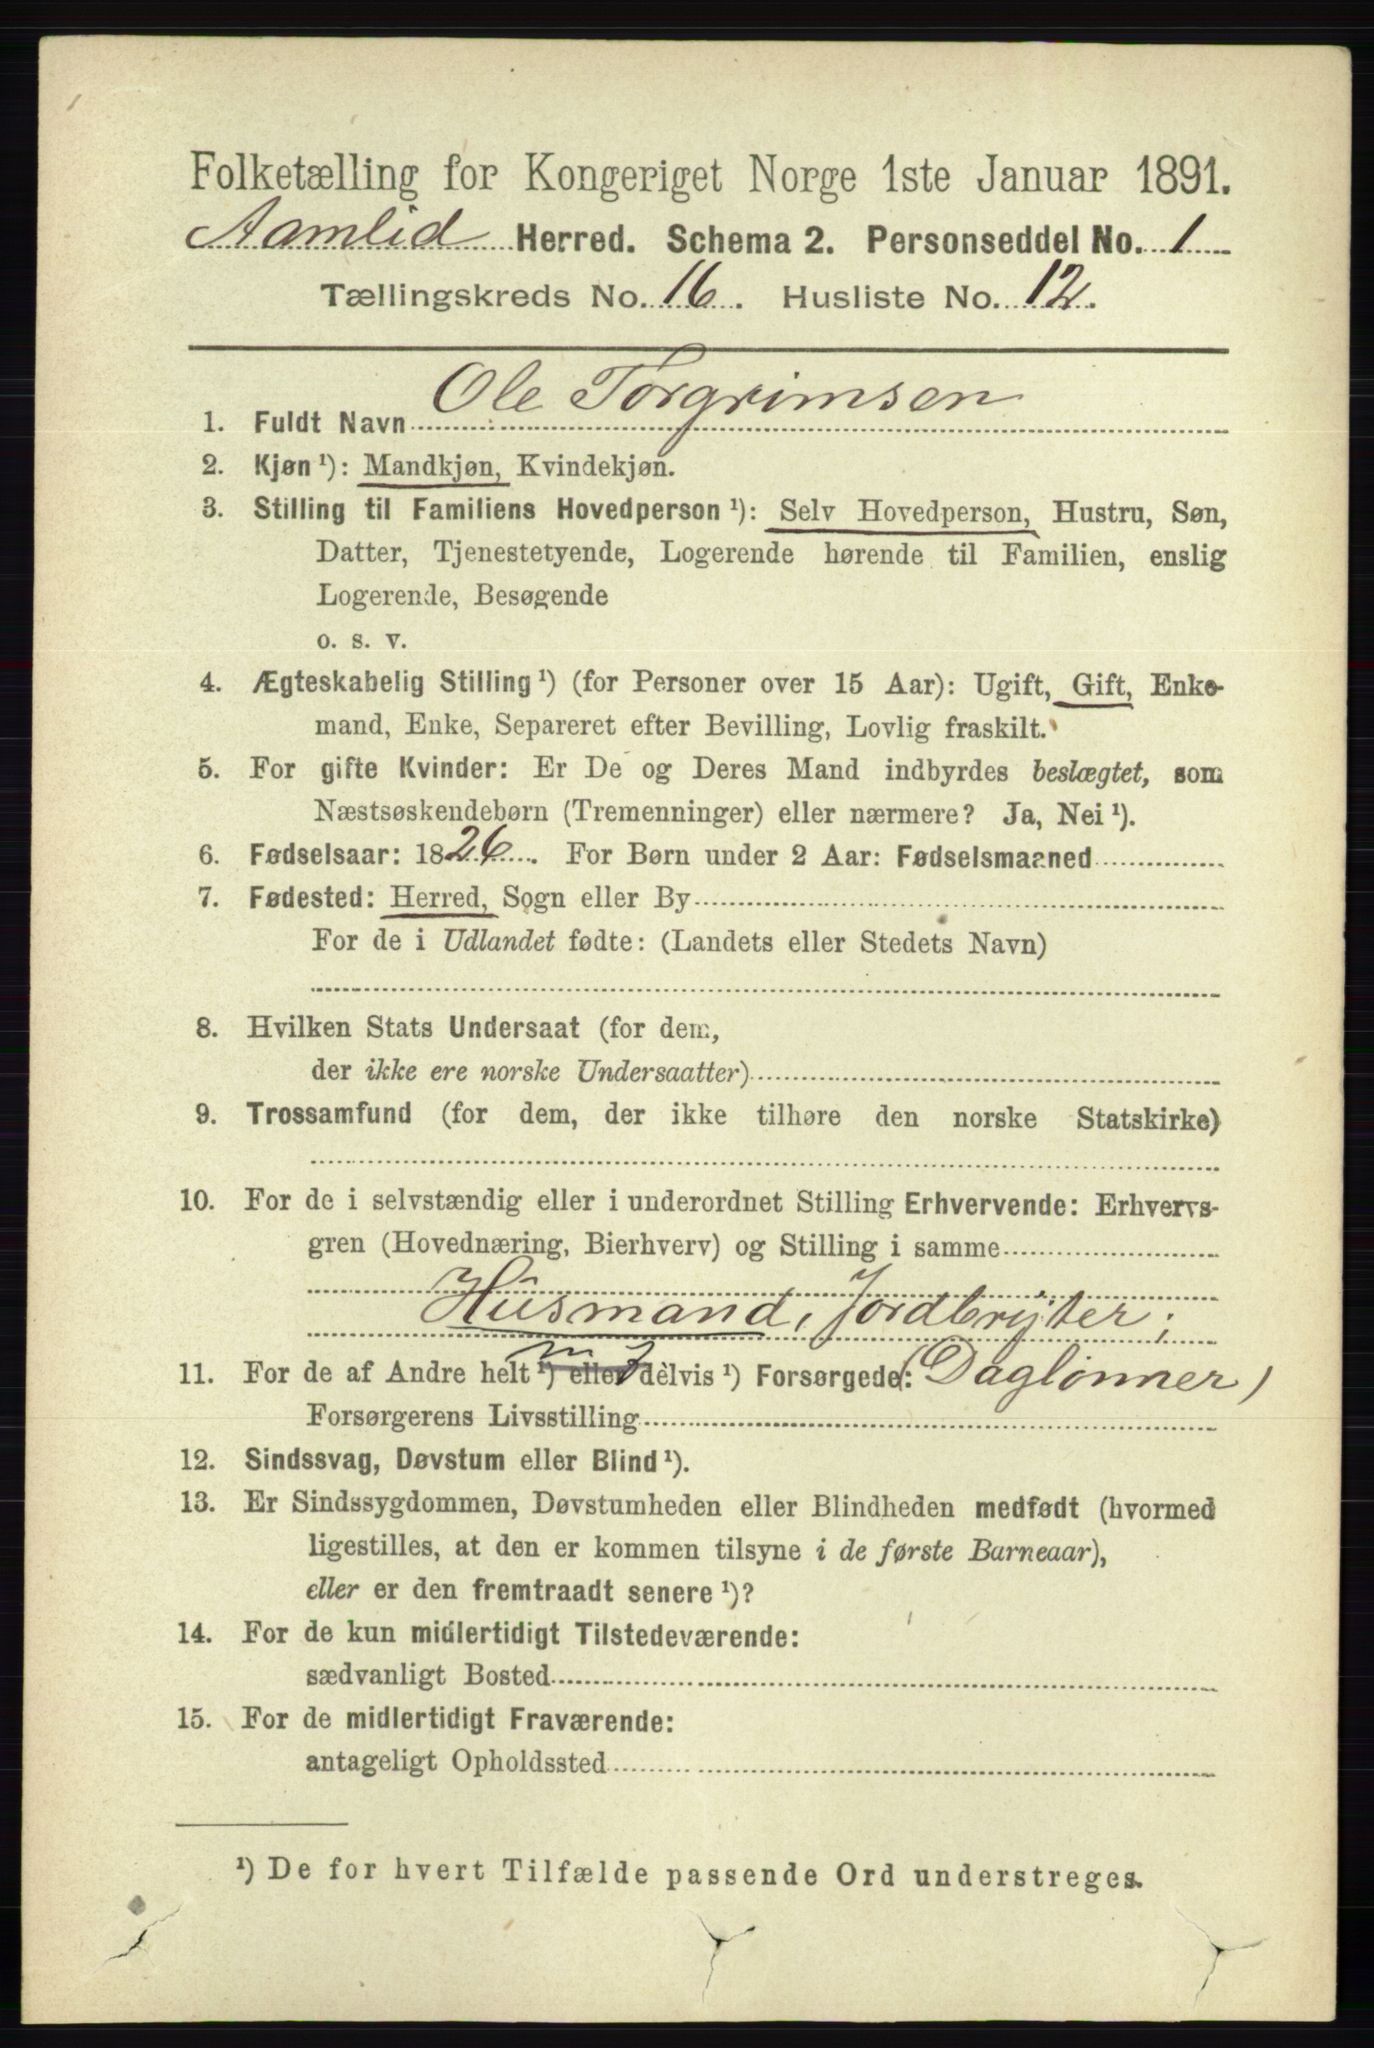 Folketælling for Kongeriget Norge 1ste Januar 1891.
Aamlid Herred. Schema 2. Personseddel No. 1
Tællingskreds No. 16. Husliste No. 12.
Ole Torgrimsen
1. Fuldt Navn
2. Kjøn ¹): Mandkjøn, Kvindekjøn.
3. Stilling til Familiens Hovedperson ¹): Selv Hovedperson, Hustru, Søn,
Datter, Tjenestetyende, Logerende hørende til Familien, enslig
Logerende, Besøgende
o. s. v.
4. Ægteskabelig Stilling ¹) (for Personer over 15 Aar): Ugift, Gift, Enke-
mand, Enke, Separeret efter Bevilling, Lovlig fraskilt.
5. For gifte Kvinder: Er De og Deres Mand indbyrdes beslægtet, som
Næstsøskendebørn (Tremenninger) eller nærmere? Ja, Nei ¹).
6. Fødselsaar: 1826. For Børn under 2 Aar: Fødselsmaaned
7. Fødested: Herred, Sogn eller By
For de i Udlandet fødte: (Landets eller Stedets Navn)
8. Hvilken Stats Undersaat (for dem,
der ikke ere norske Undersaatter)
9. Trossamfund (for dem, der ikke tilhøre den norske Statskirke)
10. For de i selvstændig eller i underordnet Stilling Erhvervende: Erhvervs-
gren (Hovednæring, Bierhverv) og Stilling i samme
Husmand, Jordbryter;
11. For de af Andre helt ¹) eller delvis ¹) Forsørgede: (Daglønner)
Forsørgerens Livsstilling
12. Sindssvag, Døvstum eller Blind ¹).
13. Er Sindssygdommen, Døvstumheden eller Blindheden medfødt (hvormed
ligestilles, at den er kommen tilsyne i de første Barneaar),
eller er den fremtraadt senere ¹)?
14. For de kun midlertidigt Tilstedeværende:
sædvanligt Bosted
15. For de midlertidigt Fraværende:
antageligt Opholdssted
¹) De for hvert Tilfælde passende Ord understreges.